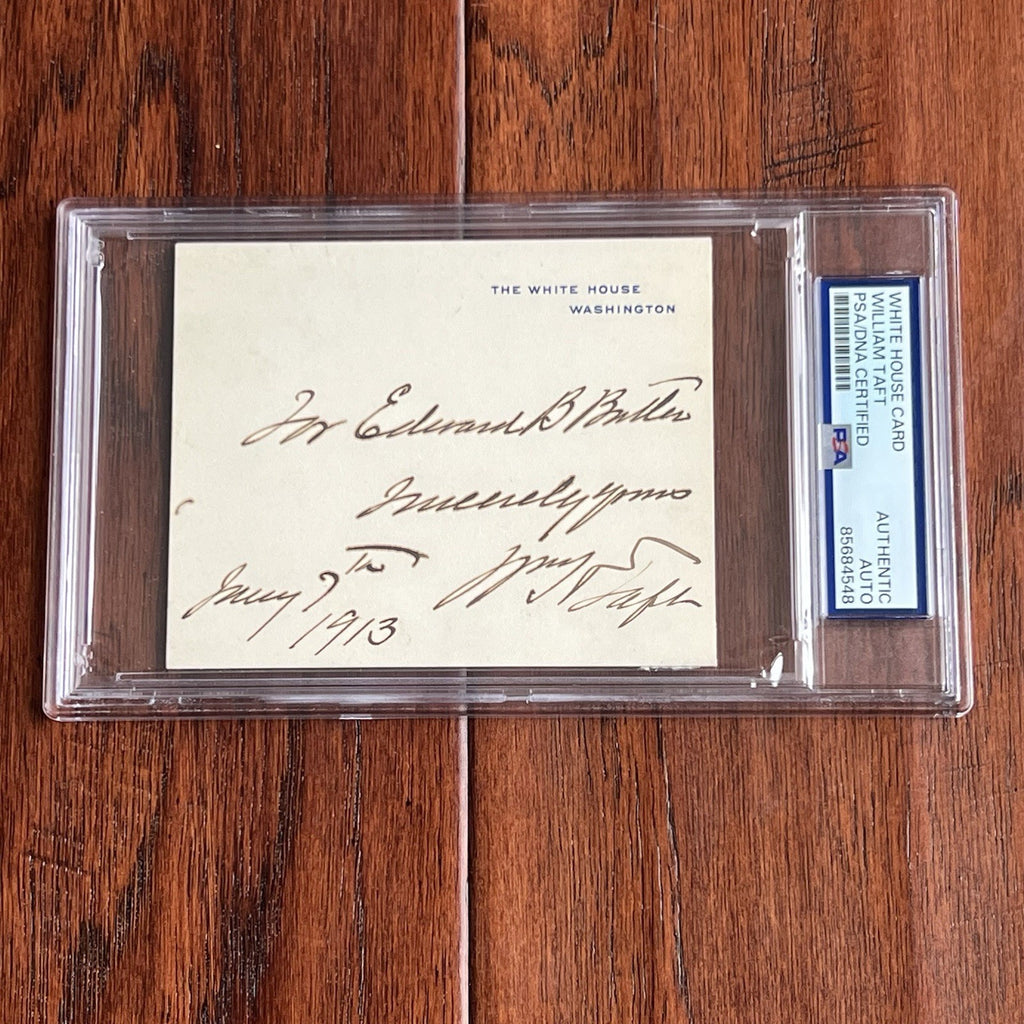 THE WHITE HOUSE
WASHINGTON
For Edward B Butler
Sincerely yours
Wm H Taft
May 7th
1913
WHITE HOUSE CARD
WILLIAM TAFT
PSA/DNA CERTIFIED
AUTHENTIC
AUTO
85684548
PSA